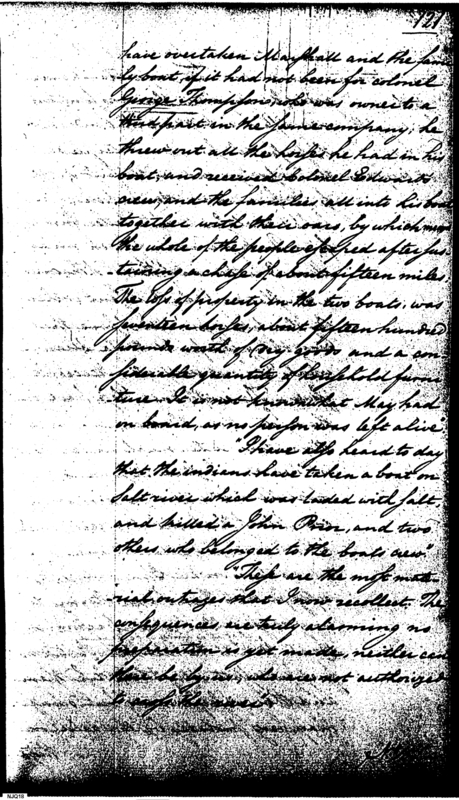 121
have overtaken Marshall and the fami
ly boat, if it had not been for colonel
George Thompson, who was owner to a
third part in the same company; he
threw out all the horses he had in his
boat, and received Colonel Edwards
crew, and the families all into his boat
together with their oars, by which means
the whole of the people escaped after sus
taining a chase of about fifteen miles.
The loss of property in the two boats, was
seventeen horses, about fifteen hundred
pounds worth of dry goods and a con
siderable quantity of household furni
ture. It is not known what May had
on board, as no person was left alive
"I have also heard to day
that the indians have taken a boat on
Salt river which was laded with salt,
and killed a John Prior, and two
others who belonged to the boats crew."
These are the most mate-
rial outrages that I now recollect. The
consequences are truly alarming no
preparation is yet made, neither can
there be by us, who are not authorized
to cross the river"
NJQ18